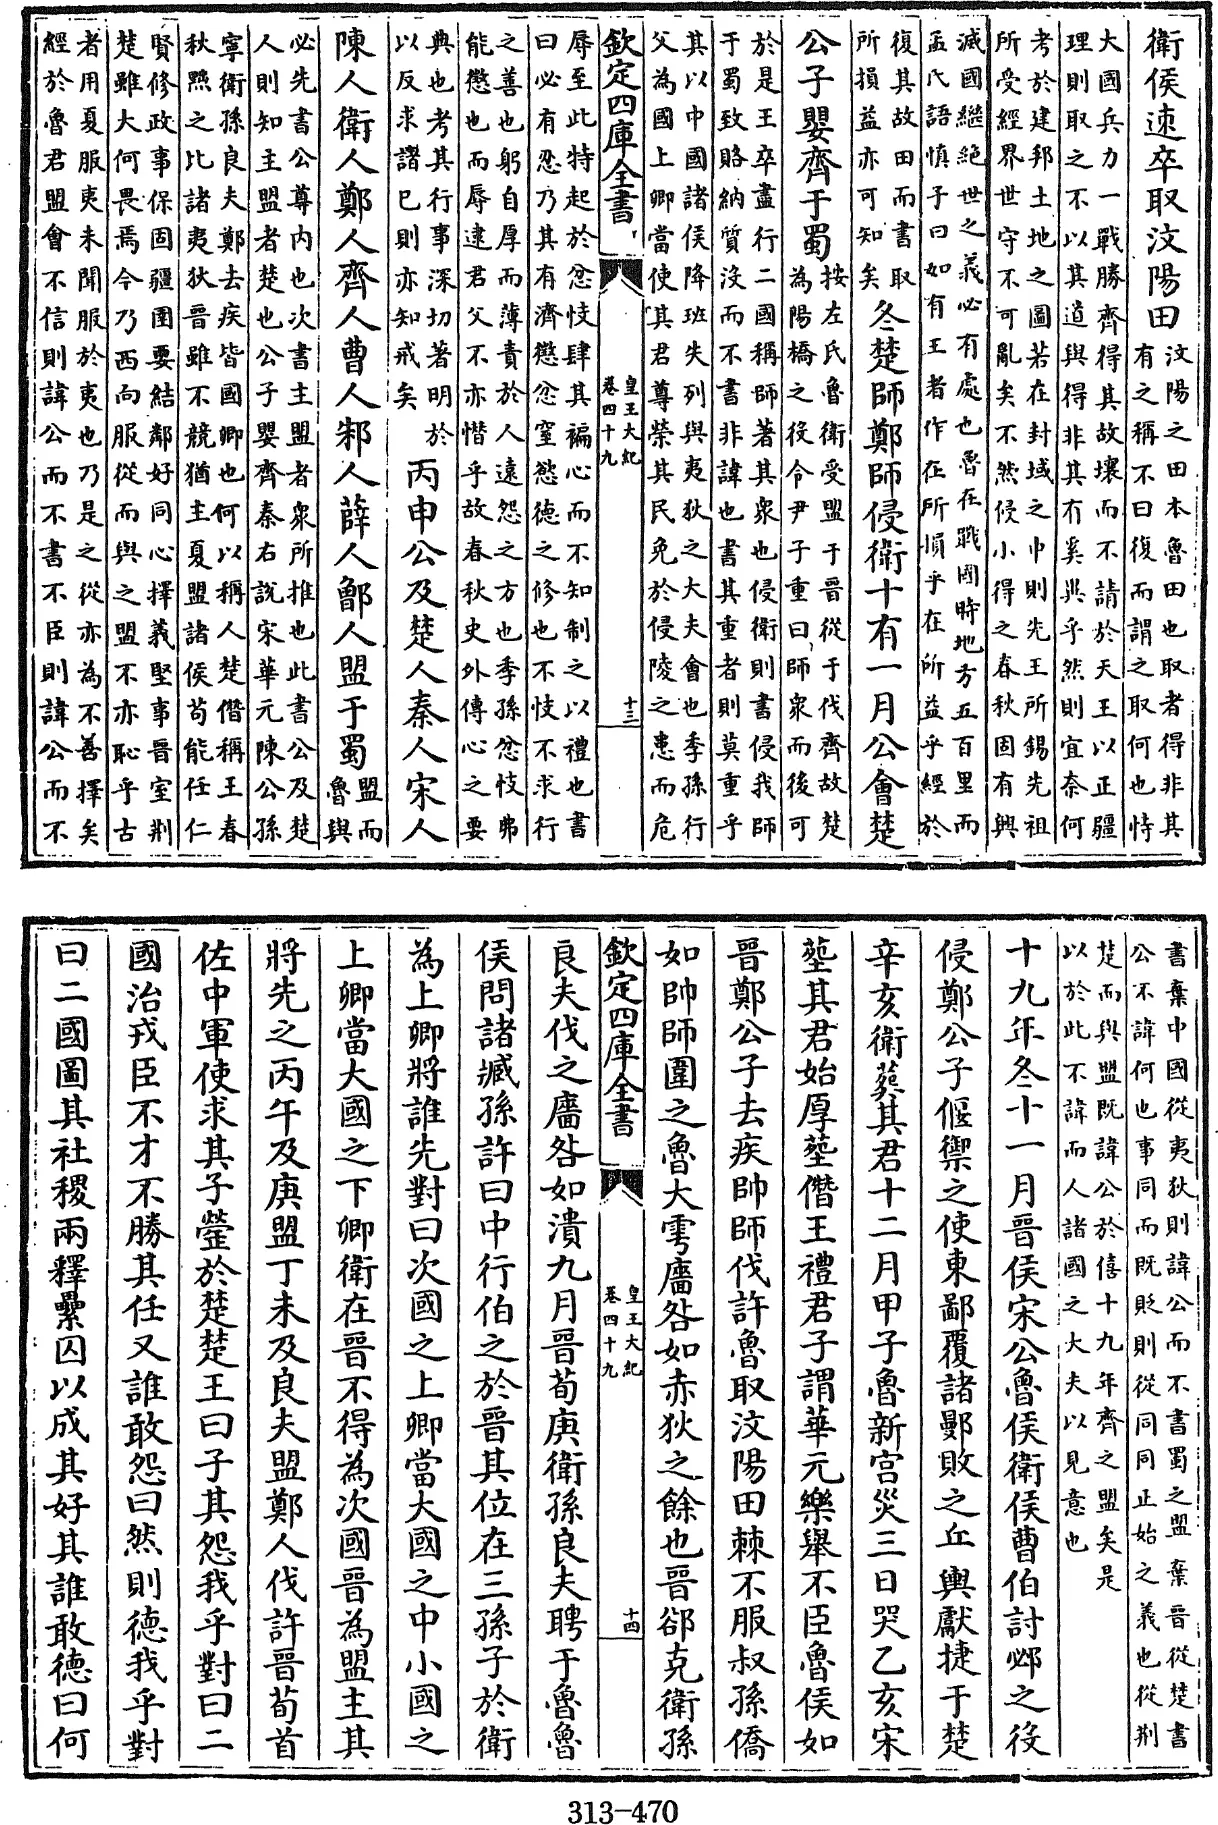 衛侯速卒取汶陽田
汶陽之田本魯田也取者得非其
有之稱不曰復而謂之取何也恃
大國兵力一戰勝齊得其故壤而不請於天王以正疆
理則取之不以其道與得非其有奚異乎然則宜奈何
考於建邦土地之圖若在封域之中則先王所錫先祖
所受經界世守不可亂矣不然侵小得之春秋固有興
滅國繼絶世之義必有處也魯在戰國時地方五百里而
孟氏語慎子曰如有王者作在所損乎在所益乎經於
復其故田而書取
所損益亦可知矣
冬楚師鄭師侵衛十有一月公會楚
公子嬰齊于蜀
按左氏魯衛受盟于晉從于伐齊故楚
為陽橋之役令尹子重曰師衆而後可
於是王卒盡行二國稱師著其衆也侵衛則書侵我師
于蜀致賂納質没而不書非諱也書其重者則莫重乎
其以中國諸侯降班失列與夷狄之大夫會也季孫行
父為國上卿當使其君尊榮其民免於侵陵之患而危
欽定四庫全書
皇王大紀
卷四十九
十三
辱至此特起於忿忮肆其褊心而不知制之以禮也書
曰必有忍乃其有濟懲忿窒慾德之修也不忮不求行
之善也躬自厚而薄責於人遠怨之方也季孫忿忮弗
能懲也而辱逮君父不亦憯乎故春秋史外傳心之要
典也考其行事深切著明於
以反求諸已則亦知戒矣
丙申公及楚人秦人宋人
陳人衛人鄭人齊人曹人邾人薛人鄫人盟于蜀
盟而
魯與
必先書公尊内也次書主盟者衆所推也此書公及楚
人則知主盟者楚也公子嬰齊秦右說宋華元陳公孫
寧衛孫良夫鄭去疾皆國卿也何以稱人楚僭稱王春
秋黜之比諸夷狄晉雖不競猶主夏盟諸侯苟能任仁
賢修政事保固疆圉要結鄰好同心擇義堅事晉室荆
楚雖大何畏焉今乃西向服從而與之盟不亦恥乎古
者用夏服夷未聞服於夷也乃是之從亦為不善擇矣
經於魯君盟會不信則諱公而不書不臣則諱公而不
書棄中國從夷狄則諱公而不書蜀之盟棄晉從楚書
公不諱何也事同而既貶則從同同正始之義也從荆
楚而與盟既諱公於僖十九年齊之盟矣是
以於此不諱而人諸國之大夫以見意也
十九年冬十一月晉侯宋公魯侯衛侯曹伯討邲之役
侵鄭公子偃禦之使東鄙覆諸鄤敗之丘輿獻捷于楚
辛亥衛葬其君十二月甲子魯新宮災三日哭乙亥宋
塟其君始厚塟僭王禮君子謂華元樂舉不臣魯侯如
晉鄭公子去疾帥師伐許魯取汶陽田棘不服叔孫僑
如帥師圍之魯大雩廧咎如赤狄之餘也晉郤克衛孫
欽定四庫全書
皇王大紀
卷四十九
十四
良夫伐之廧咎如潰九月晉荀庚衛孫良夫聘于魯魯
侯問諸臧孫許曰中行伯之於晉其位在三孫子於衛
為上卿將誰先對曰次國之上卿當大國之中小國之
上卿當大國之下卿衛在晉不得為次國晉為盟主其
將先之丙午及庚盟丁未及良夫盟鄭人伐許晉荀首
佐中軍使求其子罃於楚楚王曰子其怨我乎對曰二
國治戎臣不才不勝其任又誰敢怨曰然則德我乎對
曰二國圖其社稷兩釋纍囚以成其好其誰敢德曰何
313-470